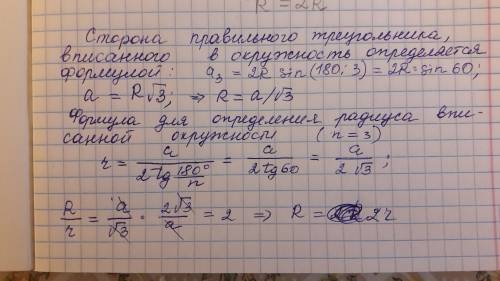 R = 2R
Сторона правильного треугольника,
вписанного в окружность определяется
формулой: a₃ = 2R sin(180:3) = 2R·sin 60;
a = R√3; ⇒ R = a/√3
Формула для определения радиуса впи-
санной окружности (n=3)
r = a/(2tg 180°/n) = a/(2tg60) = a/(2√3);
R/r = a/√3 · 2√3/a = 2 ⇒ R = 2r